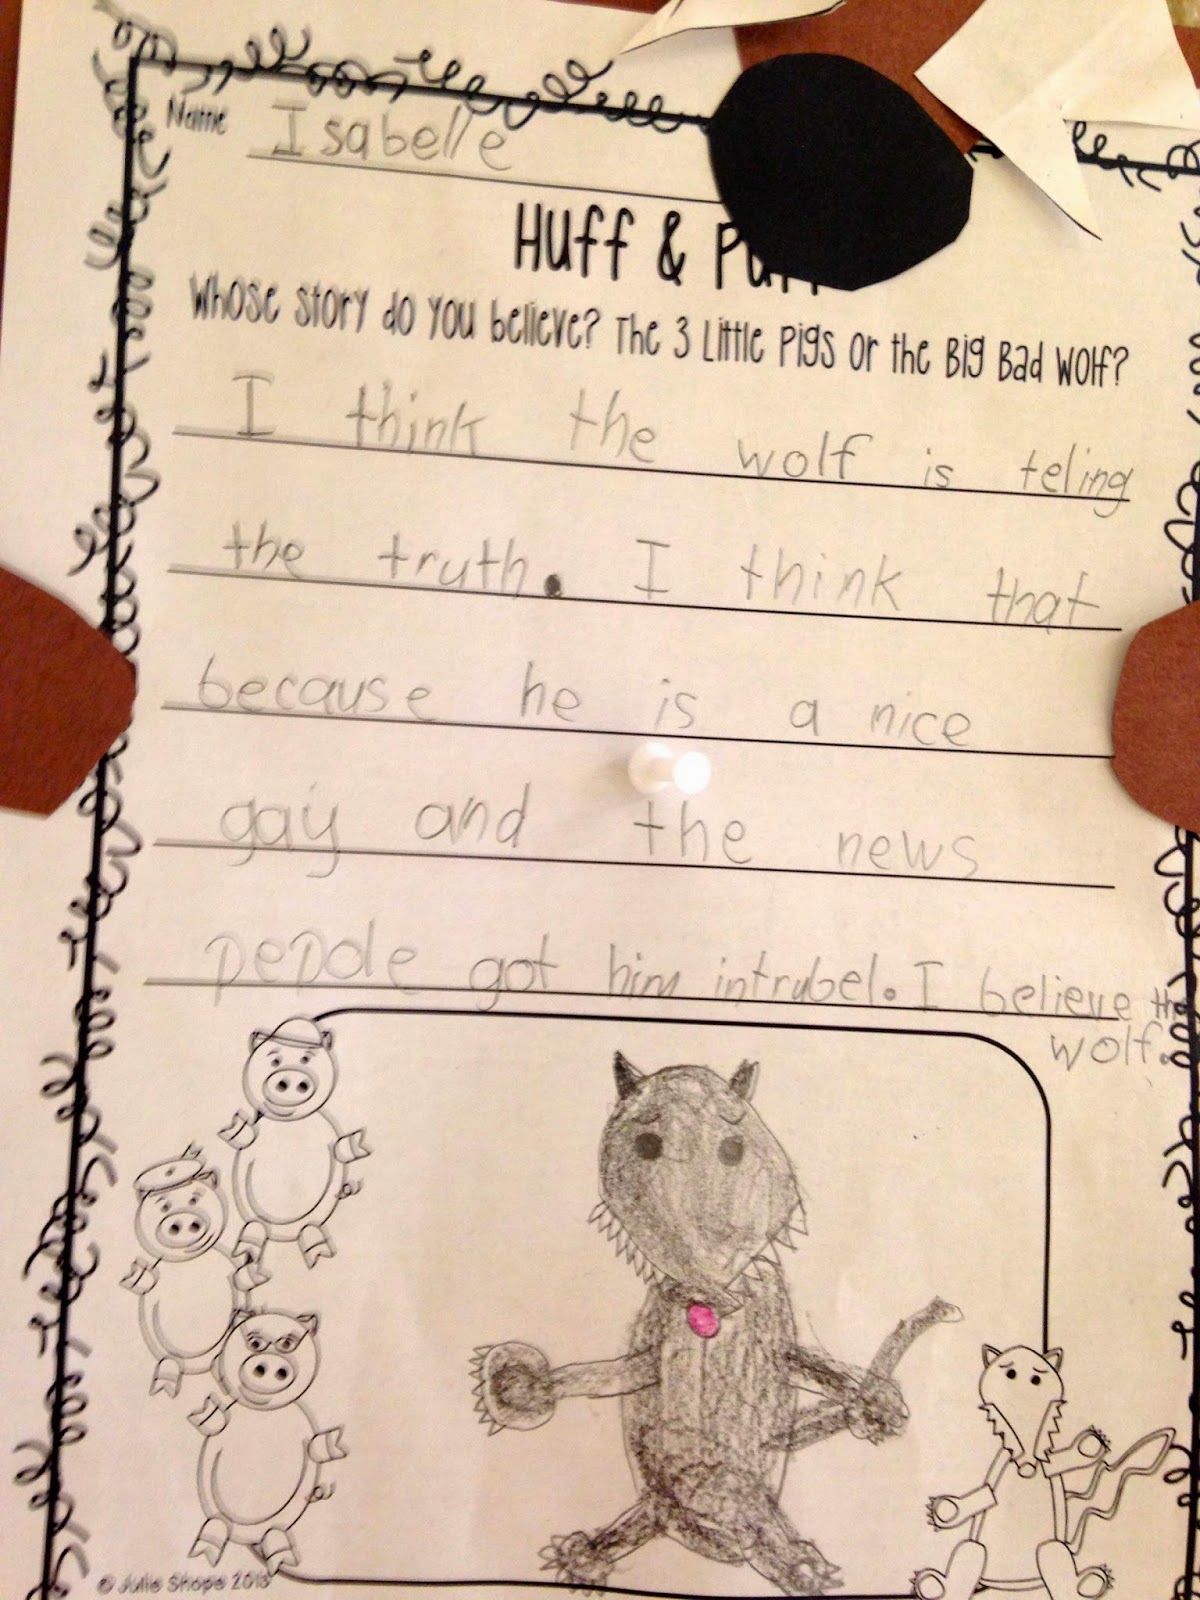 Name Isabelle
Huff & Puff
Whose story do you believe? The 3 Little Pigs or the Big Bad Wolf?
I think the wolf is teling
the truth. I think that
because he is a nice
gay and the news
pepole got him intrubel. I believe the
wolf.
© Julie Shope 2013